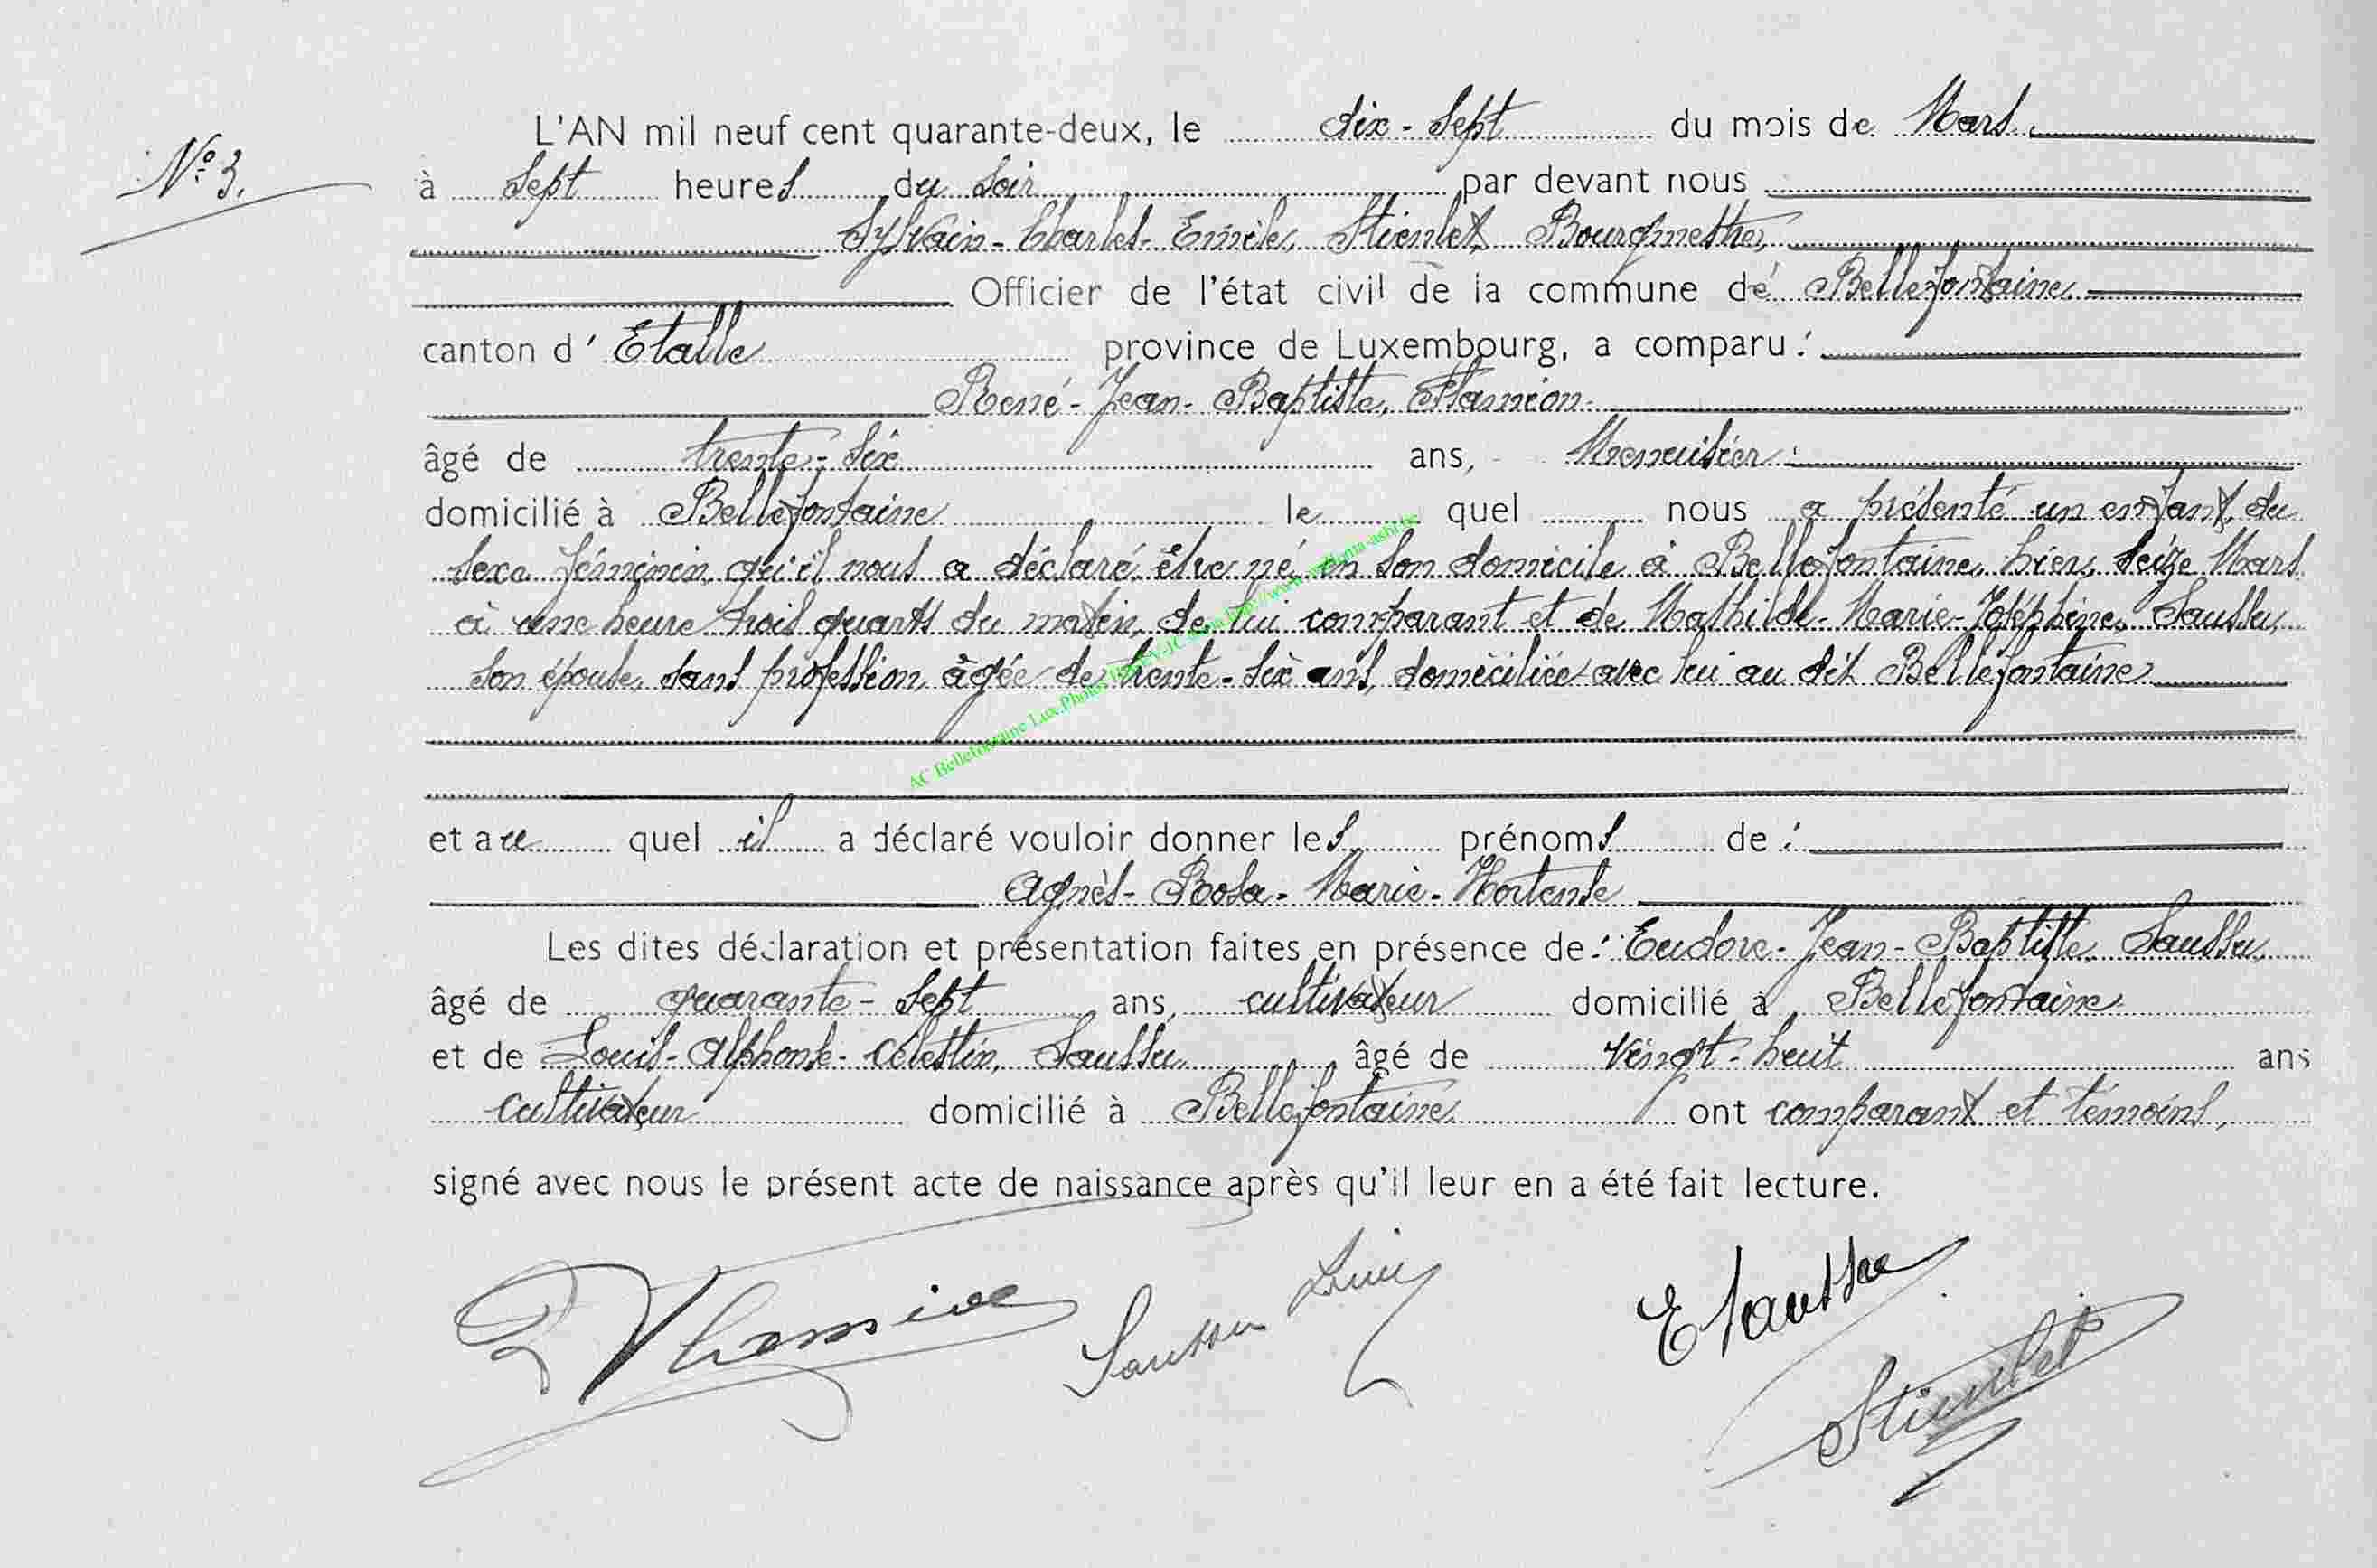 L'AN mil neuf cent quarante-deux, le dix-sept du mois de Mars.
N° 3.
à sept heures du soir par devant nous
Sylvain-Charles-Emile, Stienlet, Bourgmestre,
Officier de l'état civil de la commune de Bellefontaine
canton d' Etalle province de Luxembourg, a comparu :
René-Jean-Baptiste,
âgé de trente-six ans, Menuisier :
domicilié à Bellefontaine le quel nous a présenté un enfant du
sexe féminin, qu'il nous a déclaré être né en son domicile à Bellefontaine, hier, seize Mars
à une heure trois quarts du matin, de lui comparant et de Mathilde-Marie-Joséphine, Saussu,
son épouse, sans profession, âgée de trente-six ans, domiciliée avec lui au dit Bellefontaine
AC Bellefontaine Lux.Photos
et au quel il a déclaré vouloir donner les prénoms de :
Agnès-Rosa-Marie-Hortense
Les dites déclaration et présentation faites en présence de : Eudore-Jean-Baptiste Saussu,
âgé de quarante-sept ans, cultivateur domicilié à Bellefontaine
et de Louis-Alphonse-Célestin, Saussu, âgé de vingt-huit ans
cultivateur domicilié à Bellefontaine ont comparant et témoins,
signé avec nous le présent acte de naissance après qu'il leur en a été fait lecture.
Saussu Louis
E Saussu
Stienlet